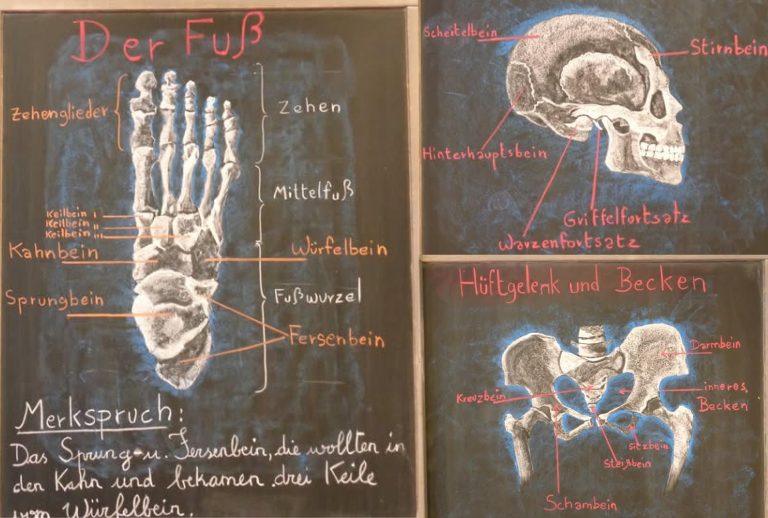 Der Fuß
Zehenglieder
Zehen
Mittelfuß
Keilbein I
Keilbein II
Keilbein III
Kahnbein
Würfelbein
Sprungbein
Fußwurzel
Fersenbein
Merkspruch:
Das Sprung-u. Fersenbein, die wollten in
den Kahn und bekamen drei Keile
vom Würfelbein.
Scheitelbein
Stirnbein
Hinterhauptsbein
Griffelfortsatz
Warzenfortsatz
Hüftgelenk und Becken
Darmbein
Kreuzbein
inneres
Becken
Sitzbein
Steißbein
Schambein